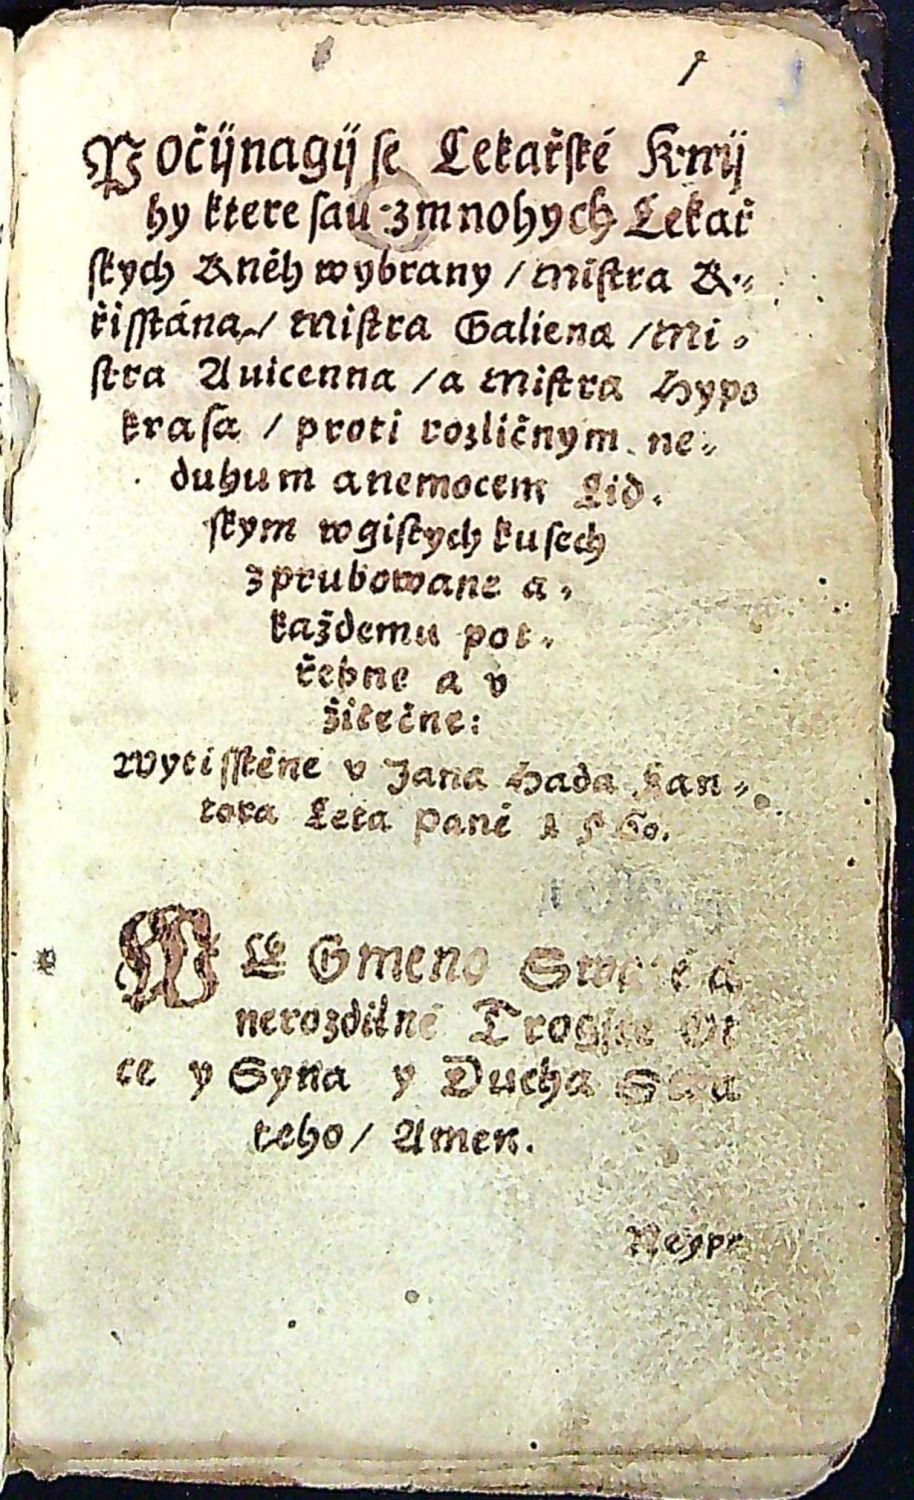 1
Počijnagij se Lekařské Knij
hy ktere sau z mnohych Lekař
skych Kněh wybrany / mistra K⸗
řisstána / Mistra Galiena / Mi⸗
stra Auicenna / a Mistra Hypo
krasa / proti rozličnym ne⸗
duhum a nemocem Lid⸗
skym w gistych kusech
zprubowane a⸗
každemu pot⸗
řebne a v
žitečne:
Wytisstěne v Jana Hada Kan⸗
tora Leta Paně
WE Gmeno Swaté a
nerozdilné Trogice Ot
ce y Syna y Ducha Swa
teho / Amen.
Neypr